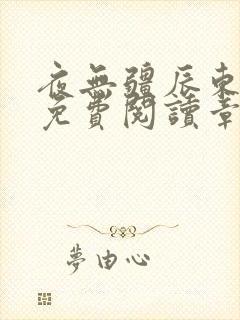 夜無疆辰東
免費閱讀章
夢由心